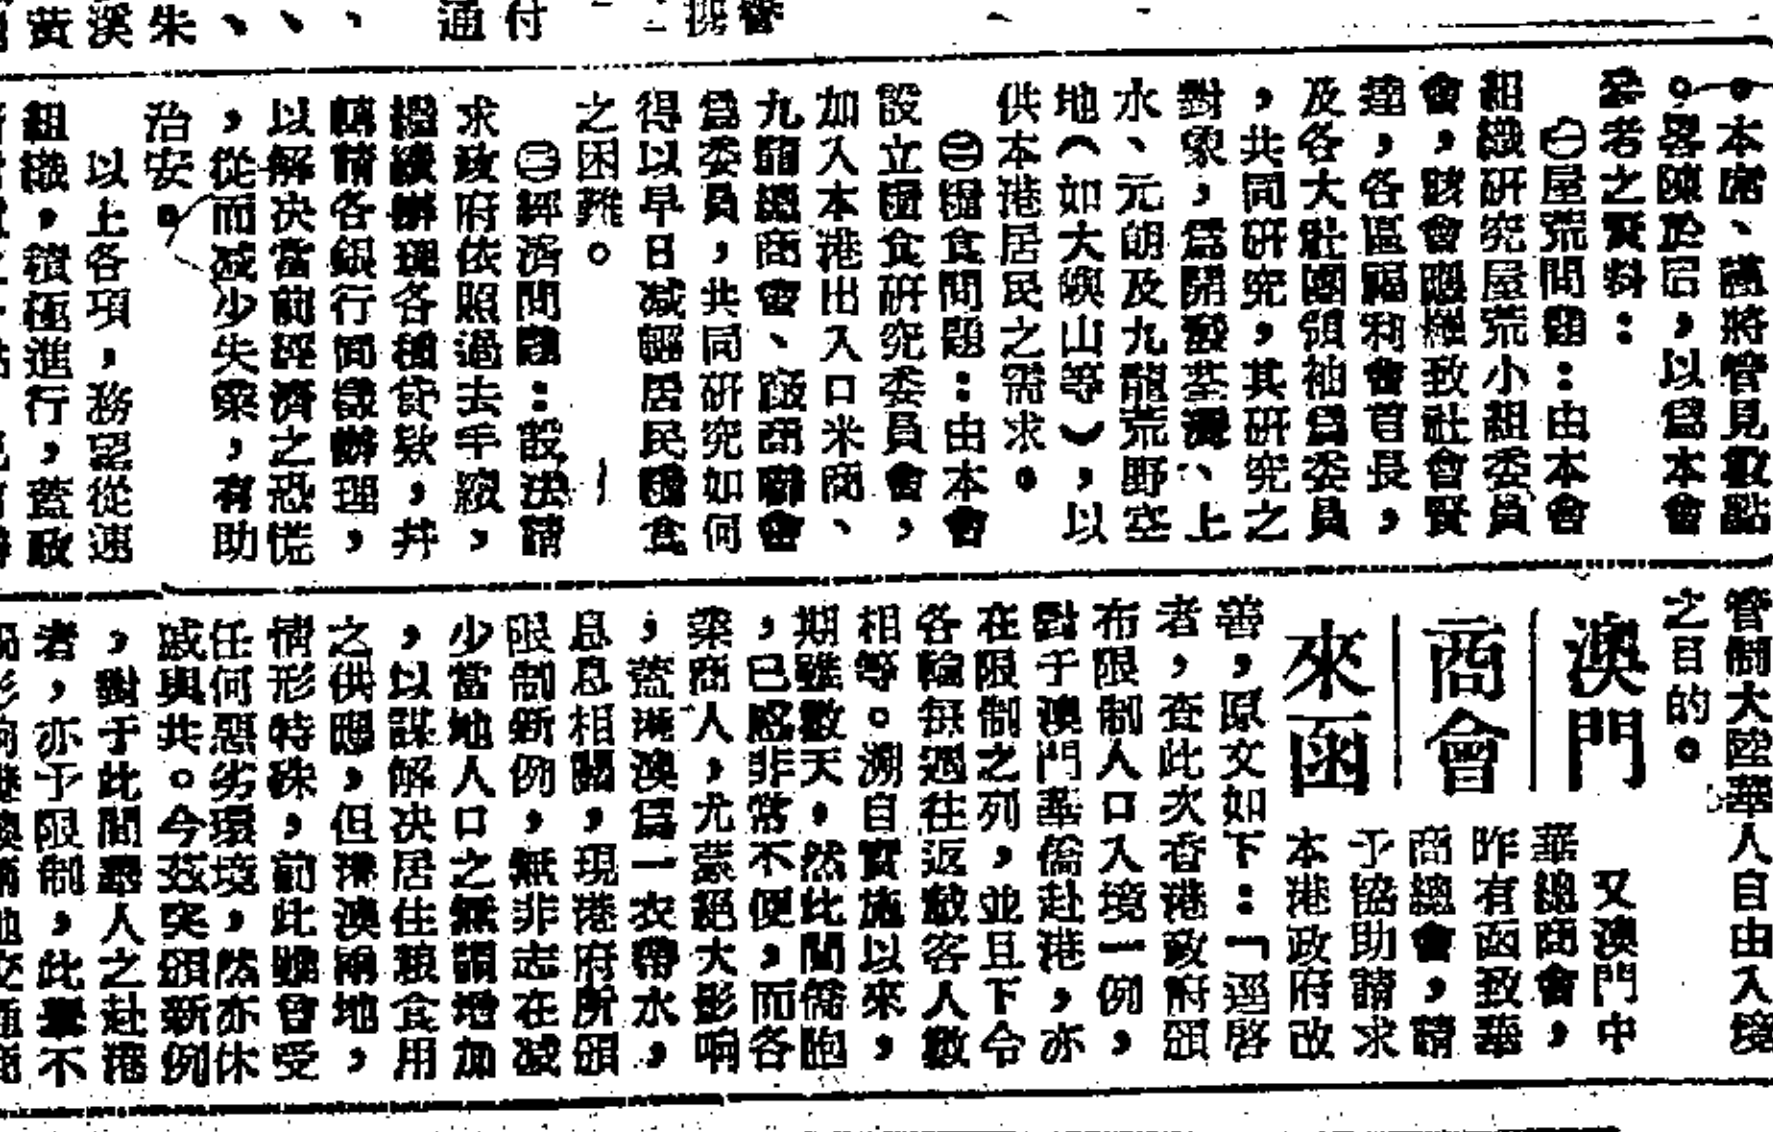 管
付
通
朱
溪
黃
。本席、謹將管見數點
。畧陳於后，以爲本會
參者之資料：
㊀屋荒問題：由本會
組織研究屋荒小組委員
會，該會應羅致社會賢
達，各區福利會首長，
及各大社團領袖爲委員
，共同研究，其研究之
對象，爲開發荃灣、上
水、元朗及九龍荒野空
地（如大嶼山等），以
供本港居民之需求。
㊁糧食問題：由本會
設立糧食研究委員會，
加入本港出入口米商、
九龍總商會、廠商聯會
爲委員，共同研究如何
得以早日減輕居民糧食
之困難。
㊂經濟問題：設法請
求政府依照過去手續，
繼續辦理各種貸欵，幷
轉請各銀行同樣辦理，
以解决當前經濟之恐慌
，從而减少失業，有助
治安。
以上各項，務望從速
組織，積極進行，蓋政
管制大陸華人自由入境
之目的。
澳門
商會
來函
又澳門中
華總商會，
昨有函致華
商總會，請
予協助請求
本港政府改
善，原文如下：「逕啓
者，查此次香港政府頒
布限制人口入境一例，
對于澳門華僑赴港，亦
在限制之列，並且下令
各輪無遇往返載客人數
相等。溯自實施以來，
期雖數天，然此間僑胞
，已感非常不便，而各
業商人，尤蒙絕大影响
，蓋港澳爲一衣帶水，
息息相關，現港府所頒
限制新例，無非志在减
少當地人口之無謂增加
，以謀解决居住粮食用
之供應，但港澳兩地，
情形特殊，前此雖曾受
任何惡劣環境，然亦休
戚與共。今茲突頒新例
，對于此間華人之赴港
者，亦予限制，此舉不